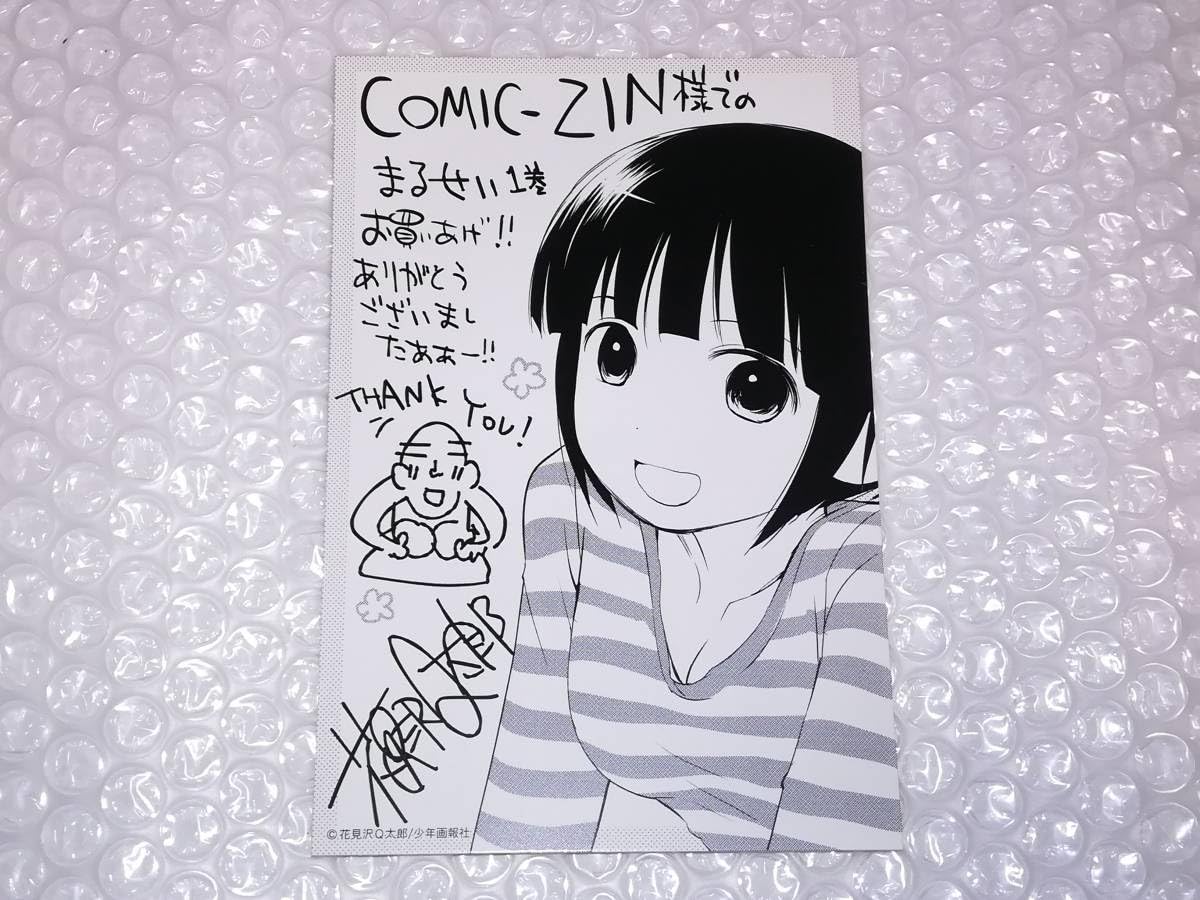 COMIC-ZIN様での
まるせい1巻
お買いあげ!!
ありがとう
ございまし
たぁぁー!!
THANK
YOU!
花見沢Q太郎
©花見沢Q太郎/少年画報社